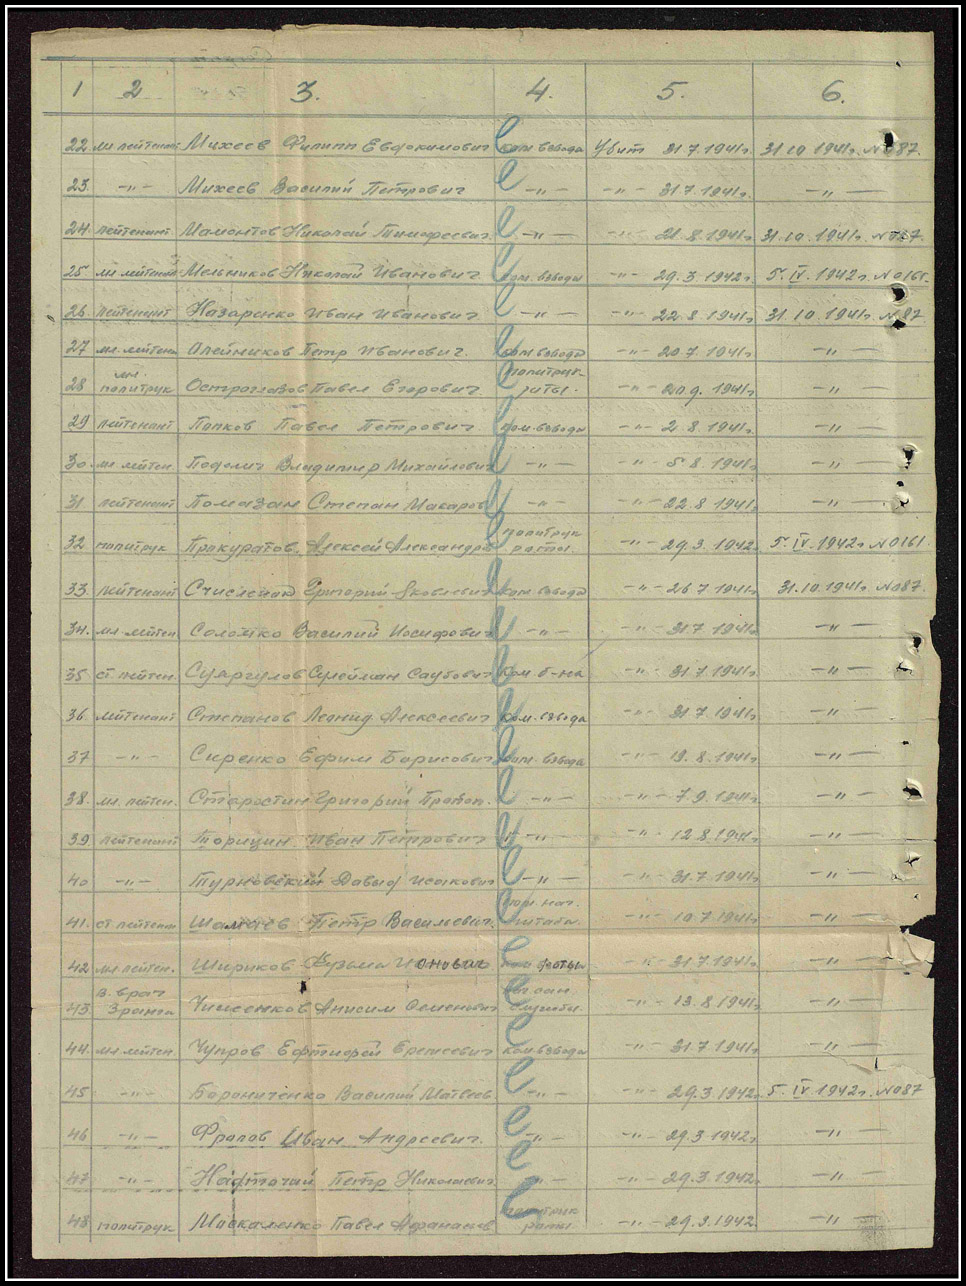 1 2 3. 4. 5. 6.
22 мл лейтенант Михеев Филипп Евдокимович ком взвода Убит 31.7.1941г. 31.10.1941г. №087.
23. -"- Михеев Василий Петрович -"- -"- 31.7.1941г. -"-
24. лейтенант Мамонтов Николай Тимофеевич -"- -"- 21.8.1941г. 31.10.1941г. №087.
25 мл лейтенант Мельников Николай Иванович ком. взвода -"- 29.3.1942г. 5.IV.1942г. №0161.
26 лейтенант Назаренко Иван Иванович -"- -"- 22.8.1941г. 31.10.1941г. №87
27 мл. лейтен Олейников Петр Иванович. ком взвода -"- 20.7.1941г -"-
28 мл. политрук Остроглазов Павел Егорович политрук -"- 20.9.1941г -"-
29 лейтенант Попков Павел Петрович ком. взвода -"- 2.8.1941г -"-
30. мл лейтен. Владимир Михайлович -"- -"- 5.8.1941г -"-
31 лейтенант Помазан Степан Макаров -"- -"- 22.8.1941 -"-
32 политрук Прокуратов Алексей Александр политрук роты -"- 29.3.1942 5.IV.1942г №0161
33. лейтенант Григорий Яковлевич ком взвода -"- 26.7.1941г 31.10.1941г. №087.
34. мл. лейтен. Соломко Василий Иосифович -"- -"- 31.7.1941г -"-
35 ст. лейтен. Сулейман ком. б-на -"- 31.7.1941г. -"-
36. лейтенант Степанов Леонид Алексеевич ком. взвода -"- 31.7.1941г -"-
37 -"- Сиренко Ефим Борисович ком. взвода -"- 19.8.1941г -"-
38. мл. лейтен. Старостин Григорий -"- -"- 7.9.1941г -"-
39 лейтенант Торицин Иван Петрович -"- -"- 12.8.1941г. -"-
40 -"- Турновский Давыд Исакович -"- -"- 31.7.1941г -"-
41. ст лейтенан Шамаев Петр Васильевич. пом. нач. штаба -"- 10.7.1941г -"-
42 мл лейтен. Шириков Кузьма роты -"- 31.7.1941г -"-
43. в. врач 3 ранга Анисим Семенович нач. сан. службы. -"- 13.8.1941г -"-
44. мл лейтен. Чупров ком взвода -"- 31.7.1941г -"-
45 -"- Василий Матвеев -"- -"- 29.3.1942г. 5.IV.1942г. №087
46 -"- Фролов Иван Андреевич. -"- -"- 29.3.1942г -"-
47 -"- Петр Николаевич -"- -"- 29.3.1942г. -"-
48 политрук Москаленко Павел Афанасов политрук роты -"- 29.3.1942. -"-